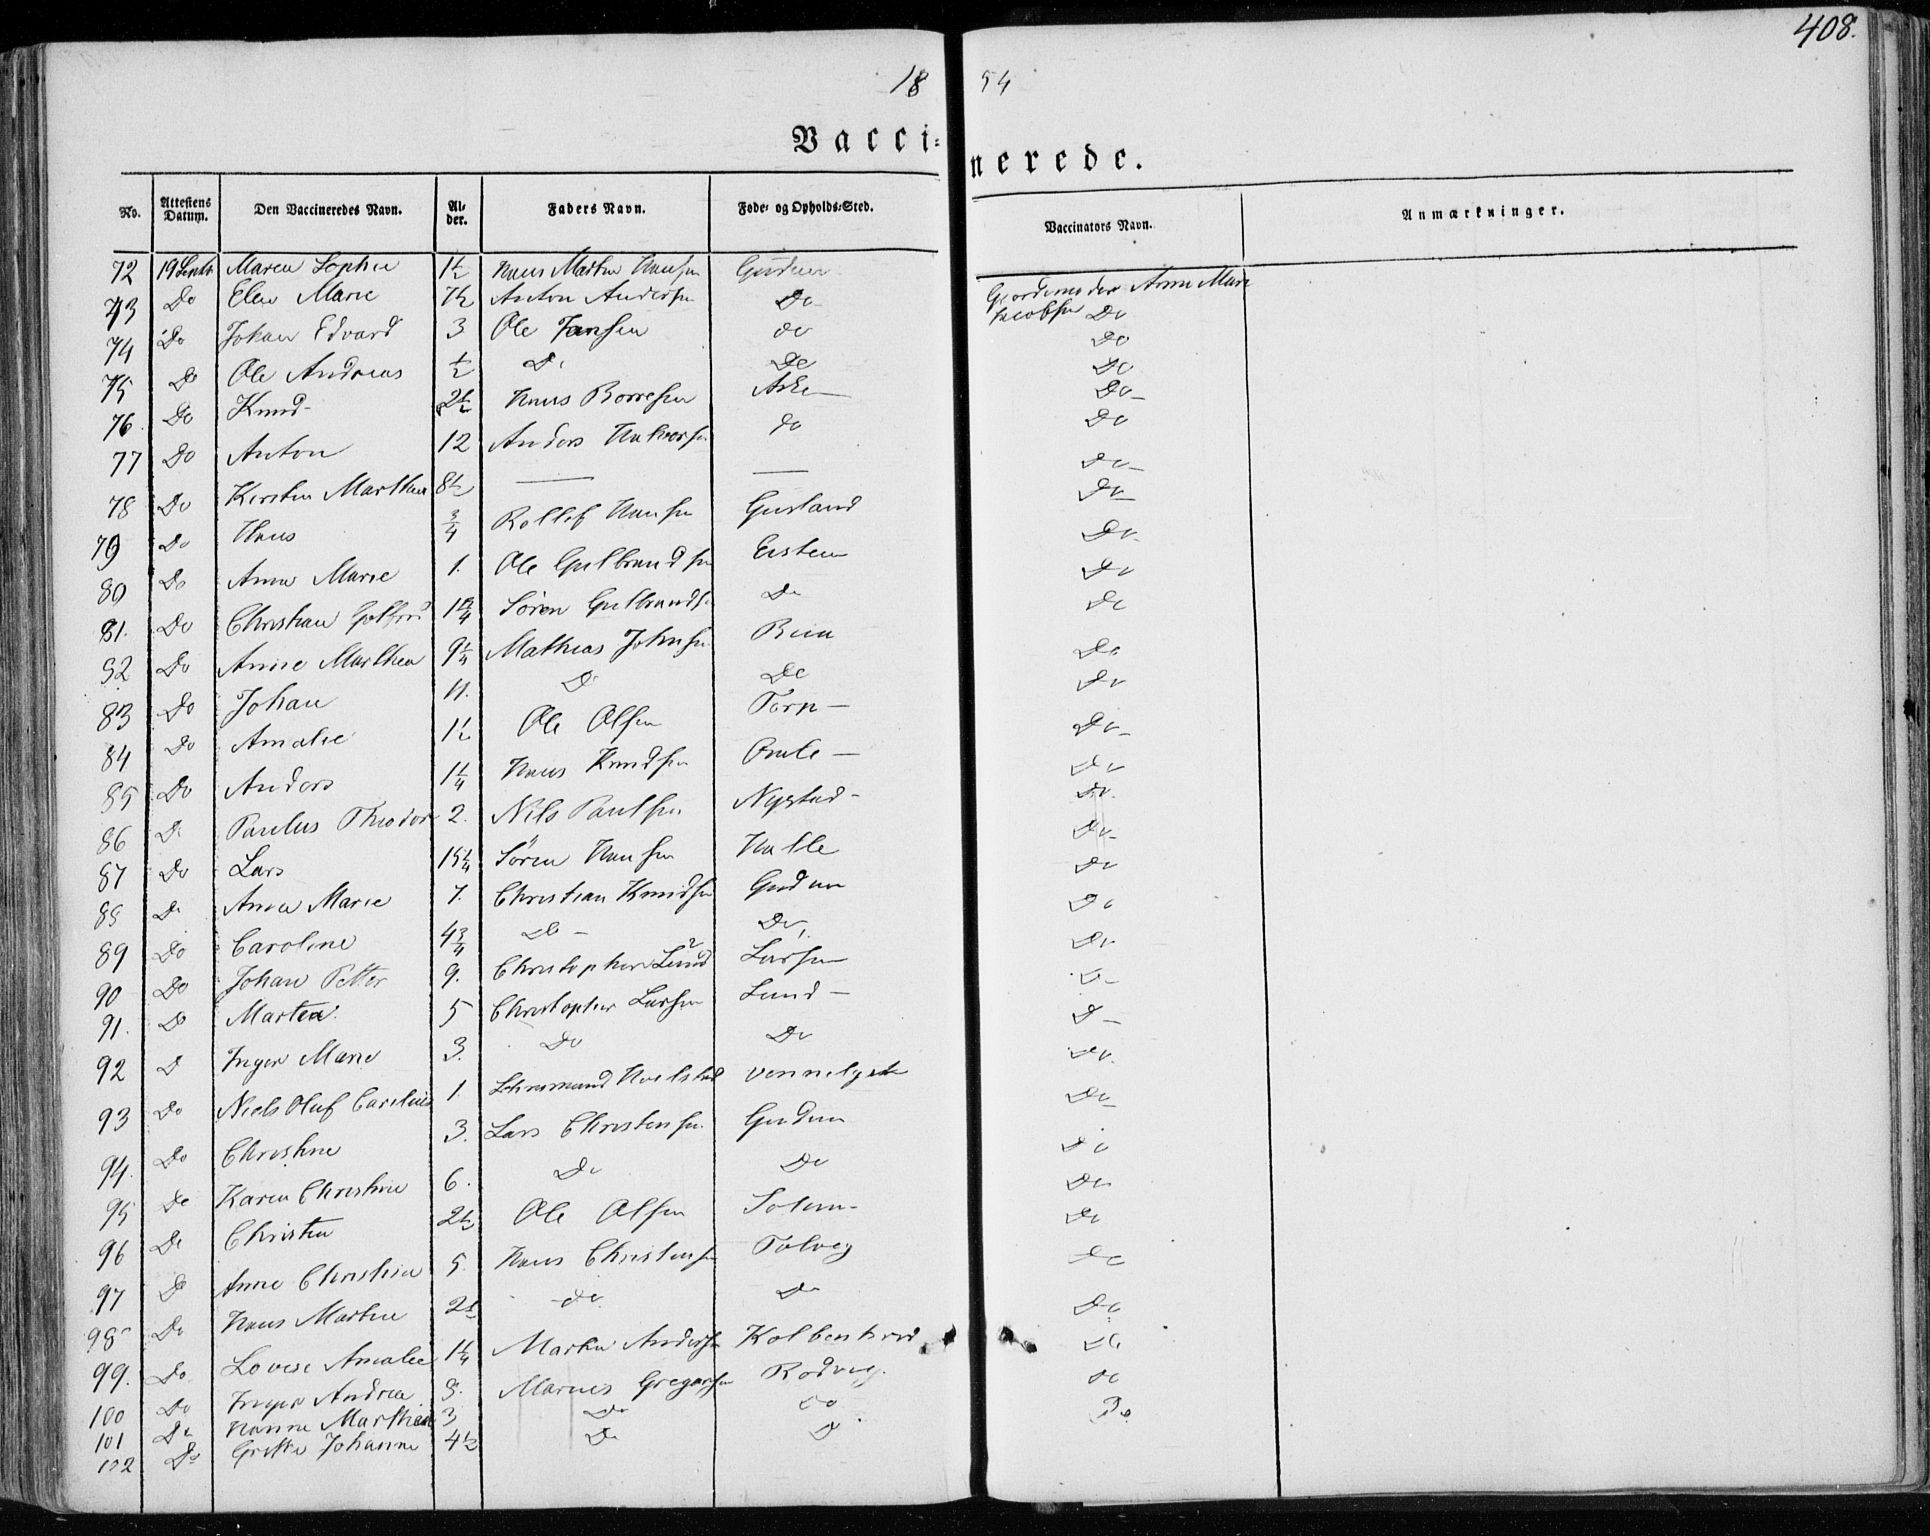 408.
18 54
Vacci= nerede.
No. | Attestens Datum. | Den Vaccineredes Navn. | Al-der. | Faders Navn. | Føde- og Opholds-Sted. | Vaccinators Navn. | Anmærkninger.
72 19 Septbr Maren Sophie 1½ Hans Martin Hansen Gudum Gjordemoder Anne Marie Jacobsen
73 Do Elen Marie 7½ Anton Andersen Do Do
74 Do Johan Edvard 3 Ole Jansen do Do
75 Do Ole Andreas ½ Do Do Do
76. Do Knud 2½ Hans Borresen Aske Do
77 Do Anton 12 Anders Halvorsen do Do
78 Do Kirsten Marthea 8½ — — Do
79 Do Hans ¾ Rollef Hansen Gusland Do
80 Do Anne Marie 1. Ole Gulbrandsen Eisten Do
81. Do Christian Gotfried Søren Gulbrandsen Do Do
82 Do Anne Marthea 9¼ Mathias Johnsen Do
83 Do Johan 11. Do Do Do
84 Do Amalie 1½ Ole Olsen Torp Do
85 Do Anders 1¼ Hans Knudsen Omle Do
86 Do Paulus Theodor 2. Nils Paulsen Nystad Do
87 Do Lars 15¼ Sören Hansen Halle Do
88 Do Anne Marie 7. Christian Knudsen Gudum Do
89 Do Caroline 4¾ Do Do Do
90 Do Johan Petter 9. Christopher Lund Larsen Do
91. Do Martea 5 Christopher Larsen Lund Do
92 Do Inger Marie 3. Do Do Do
93 Do Niels Oluf Carelius 1 vennelyst Do
94. Do Christine 3. Lars Christensen Gudum Do
95 Do Karen Christine 6. Do Do Do
96 Do Christen 2½ Ole Olsen Solum Do
97 Do Anne Christine 5. Hans Christensen Tolveg Do
98 Do Hans Martin 2½ do Do Do
99. Do Lovise Amalie 1¼ Martin Andersen Kolbenstved Do
100 Do Inger Andrea Marius Gregersen Rodveg. do
101 Do Hanne Marthea 3 Do Do Do
102 Do Grethe Johanne 4½ Do Do